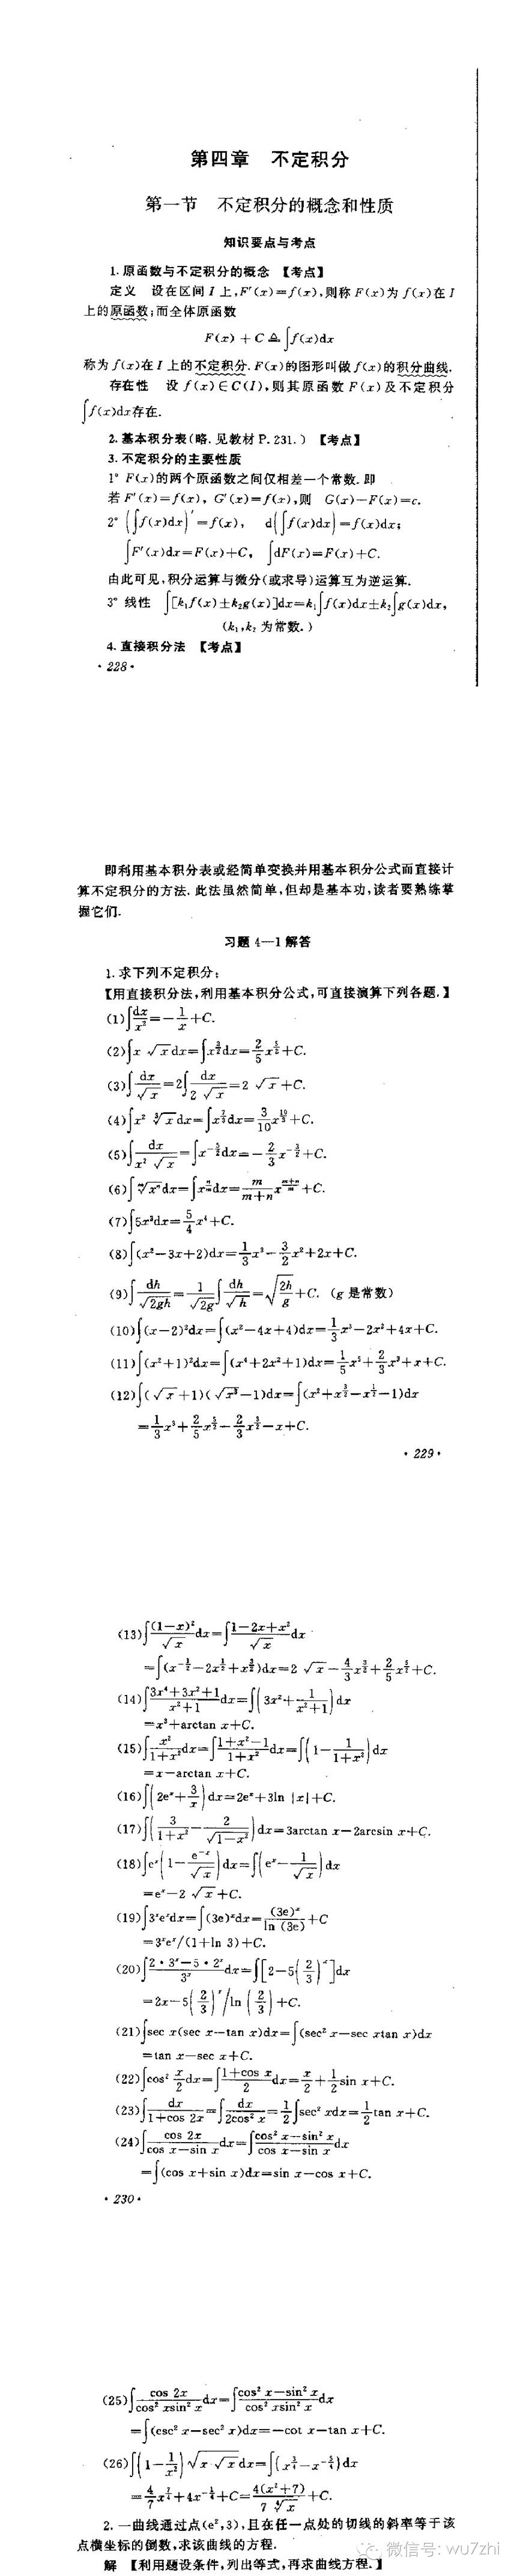 第四章 不定积分
第一节 不定积分的概念和性质
知识要点与考点
1. 原函数与不定积分的概念 【考点】
定义 设在区间 I 上,F′(x)=f(x),则称 F(x)为 f(x)在 I
上的原函数;而全体原函数
F(x) + C ≜ ∫f(x)dx
称为 f(x)在 I 上的不定积分. F(x)的图形叫做 f(x)的积分曲线.
存在性 设 f(x)∈C(I),则其原函数 F(x)及不定积分
∫f(x)dx存在.
2. 基本积分表(略. 见教材 P. 231. ) 【考点】
3. 不定积分的主要性质
1° F(x)的两个原函数之间仅相差一个常数. 即
若 F′(x)=f(x), G′(x)=f(x),则 G(x)-F(x)=c.
2° (∫f(x)dx)′=f(x), d(∫f(x)dx)=f(x)dx;
∫F′(x)dx=F(x)+C, ∫dF(x)=F(x)+C.
由此可见,积分运算与微分(或求导)运算互为逆运算.
3° 线性 ∫[k₁f(x)±k₂g(x)]dx=k₁∫f(x)dx±k₂∫g(x)dx,
(k₁,k₂ 为常数. )
4. 直接积分法 【考点】
· 228 ·
即利用基本积分表或经简单变换并用基本积分公式而直接计
算不定积分的方法. 此法虽然简单,但却是基本功,读者要熟练掌
握它们.
习题 4—1 解答
1. 求下列不定积分:
【用直接积分法,利用基本积分公式,可直接演算下列各题. 】
(1)∫dx/x²=-1/x+C.
(2)∫x√x dx=∫x^(3/2)dx=2/5 x^(5/2)+C.
(3)∫dx/√x=2∫dx/(2√x)=2√x+C.
(4)∫x² ∛x dx=∫x^(7/3)dx=3/10 x^(10/3)+C.
(5)∫dx/(x²√x)=∫x^(-5/2)dx=-2/3 x^(-3/2)+C.
(6)∫ᵐ√(xⁿ)dx=∫x^(n/m)dx=m/(m+n) x^((m+n)/m)+C.
(7)∫5x³dx=5/4 x⁴+C.
(8)∫(x²-3x+2)dx=1/3 x³-3/2 x²+2x+C.
(9)∫dh/√(2gh)=1/√(2g)∫dh/√h=√(2h/g)+C. (g 是常数)
(10)∫(x-2)²dx=∫(x²-4x+4)dx=1/3 x³-2x²+4x+C.
(11)∫(x²+1)²dx=∫(x⁴+2x²+1)dx=1/5 x⁵+2/3 x³+x+C.
(12)∫(√x+1)(√(x³)-1)dx=∫(x²+x^(3/2)-x^(1/2)-1)dx
=1/3 x³+2/5 x^(5/2)-2/3 x^(3/2)-x+C.
· 229 ·
(13)∫(1-x)²/√x dx=∫(1-2x+x²)/√x dx
=∫(x^(-1/2)-2x^(1/2)+x^(3/2))dx=2√x-4/3 x^(3/2)+2/5 x^(5/2)+C.
(14)∫(3x⁴+3x²+1)/(x²+1)dx=∫(3x²+1/(x²+1))dx
=x³+arctan x+C.
(15)∫x²/(1+x²)dx=∫(1+x²-1)/(1+x²)dx=∫(1-1/(1+x²))dx
=x-arctan x+C.
(16)∫(2eˣ+3/x)dx=2eˣ+3ln |x|+C.
(17)∫(3/(1+x²)-2/√(1-x²))dx=3arctan x-2arcsin x+C.
(18)∫eˣ(1-e⁻ˣ/√x)dx=∫(eˣ-1/√x)dx
=eˣ-2√x+C.
(19)∫3ˣeˣdx=∫(3e)ˣdx=(3e)ˣ/ln (3e)+C
=3ˣeˣ/(1+ln 3)+C.
(20)∫(2·3ˣ-5·2ˣ)/3ˣ dx=∫[2-5(2/3)ˣ]dx
=2x-5(2/3)ˣ/ln(2/3)+C.
(21)∫sec x(sec x-tan x)dx=∫(sec² x-sec xtan x)dx
=tan x-sec x+C.
(22)∫cos² x/2 dx=∫(1+cos x)/2 dx=x/2+1/2 sin x+C.
(23)∫dx/(1+cos 2x)=∫dx/(2cos² x)=1/2∫sec² xdx=1/2 tan x+C.
(24)∫cos 2x/(cos x-sin x)dx=∫(cos² x-sin² x)/(cos x-sin x)dx
=∫(cos x+sin x)dx=sin x-cos x+C.
· 230 ·
(25)∫cos 2x/(cos² xsin² x)dx=∫(cos² x-sin² x)/(cos² xsin² x)dx
=∫(csc² x-sec² x)dx=-cot x-tan x+C.
(26)∫(1-1/x²)√(x√x)dx=∫(x^(3/4)-x^(-5/4))dx
=4/7 x^(7/4)+4x^(-1/4)+C=4(x²+7)/(7 ∜x)+C.
2. 一曲线通过点(e²,3),且在任一点处的切线的斜率等于该
点横坐标的倒数,求该曲线的方程.
解 【利用题设条件,列出等式,再求曲线方程. 】
微信号: wu7zhi